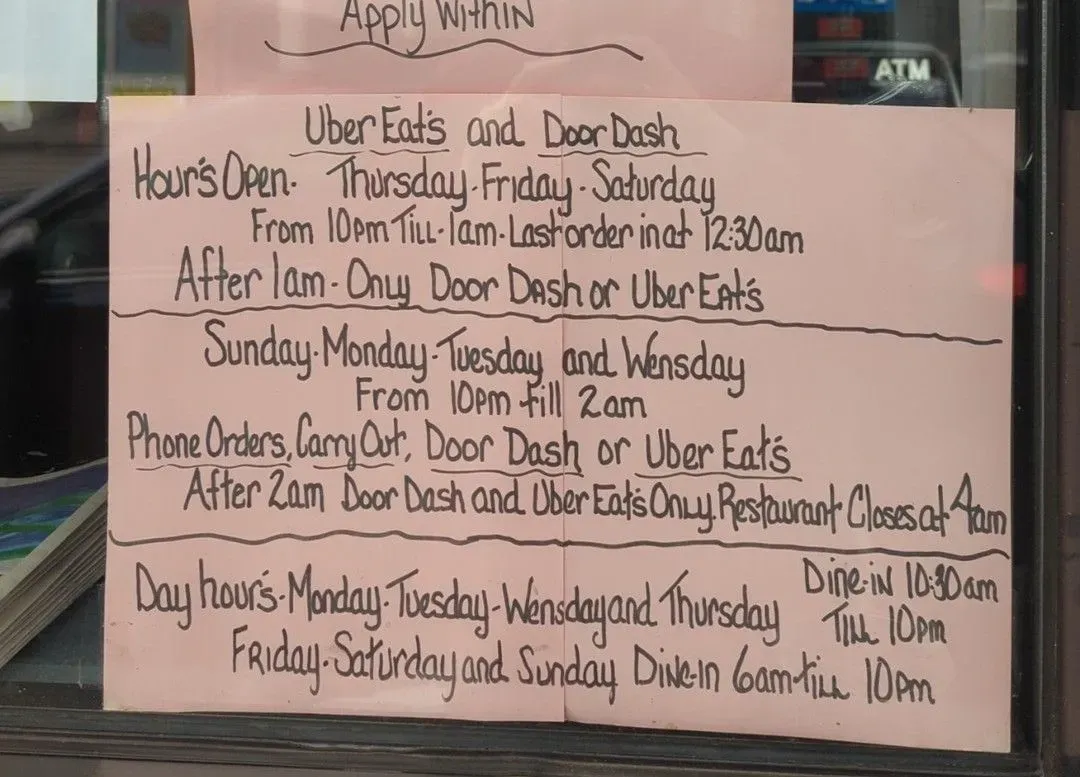 Apply Within
ATM
Uber Eat's and Door Dash
Hour's Open. Thursday-Friday-Saturday
From 10pm Till-1am-Last order in at 12:30am
After 1am-Only Door Dash or Uber Eat's
Sunday-Monday-Tuesday and Wensday
From 10pm till 2am
Phone Orders, Carry Out, Door Dash or Uber Eat's
After 2am Door Dash and Uber Eat's Only. Restaurant Closes at 4am
Day hour's-Monday-Tuesday-Wensday and Thursday Dine-in 10:30am
Till 10pm
Friday-Saturday and Sunday Dine-In 6am-till 10pm